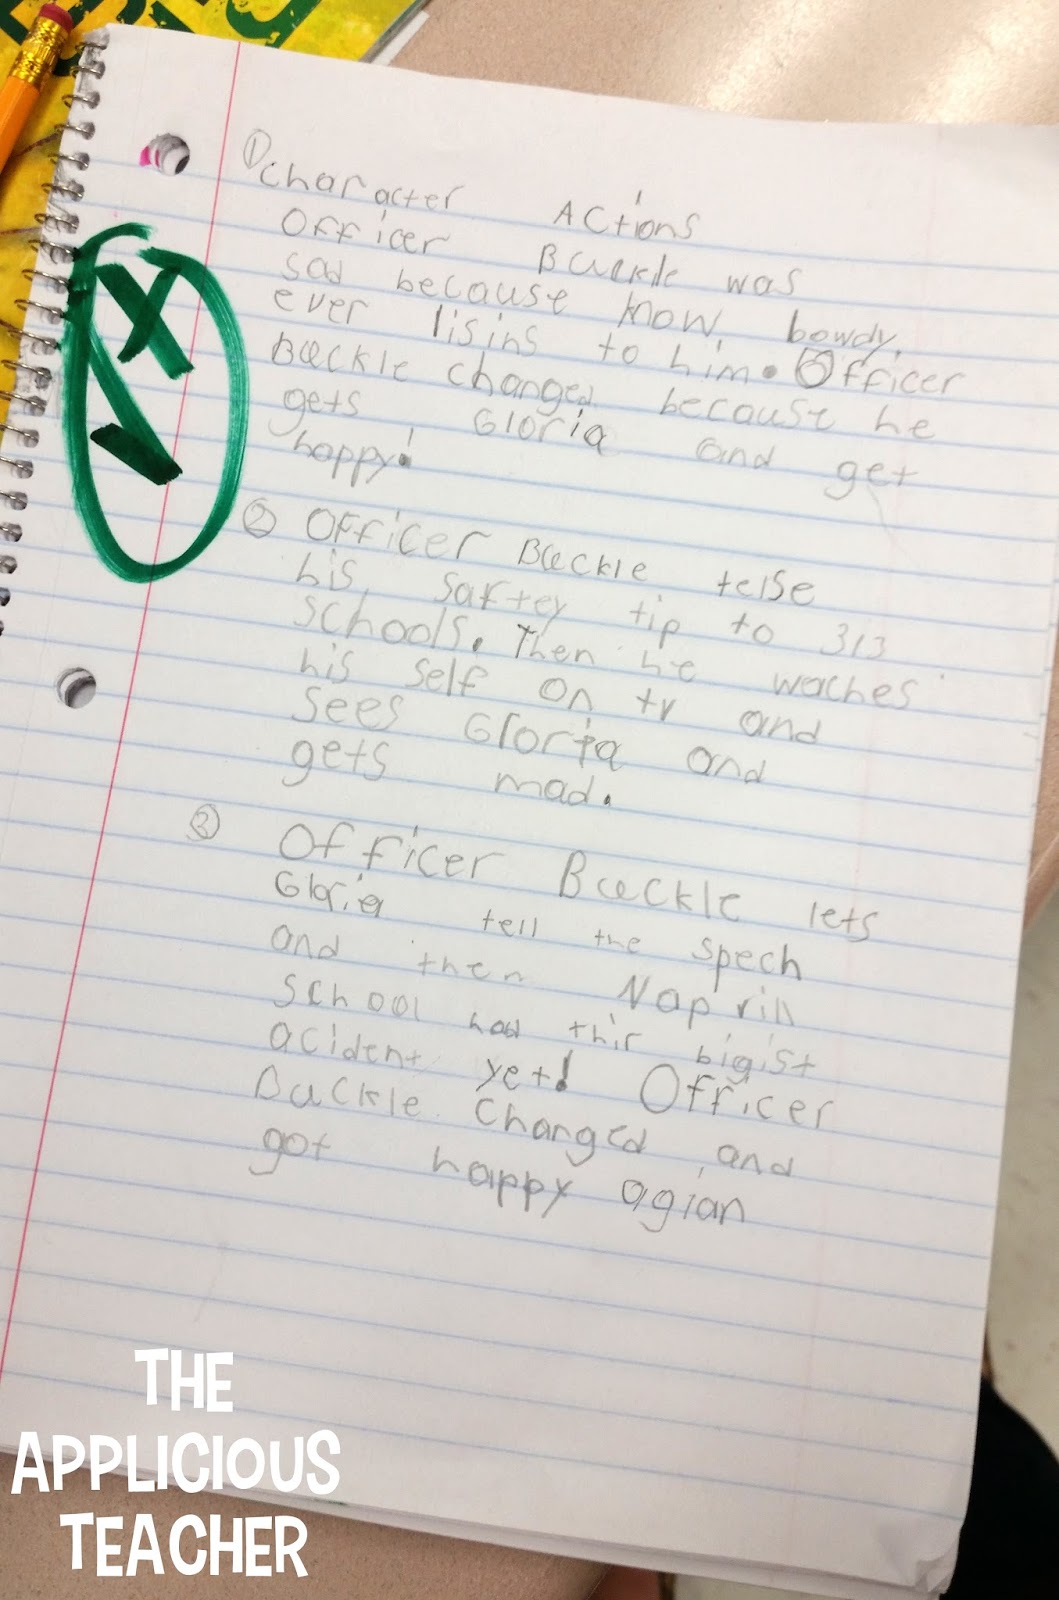 ① Character Actions
Officer Buckle was
sad because know bowdy
ever lisins to him. Officer
Buckle changed because he
gets Gloria and get
happy!
② Officer Buckle telse
his saftey tip to 313
schools. Then he waches
his self on tv and
sees Gloria and
gets mad.
③ Officer Buckle lets
Gloria tell the spech
and then Nap rill
School had thir bigist
acident yet! Officer
Buckle Changed and
got happy agian
THE
APPLICIOUS
TEACHER